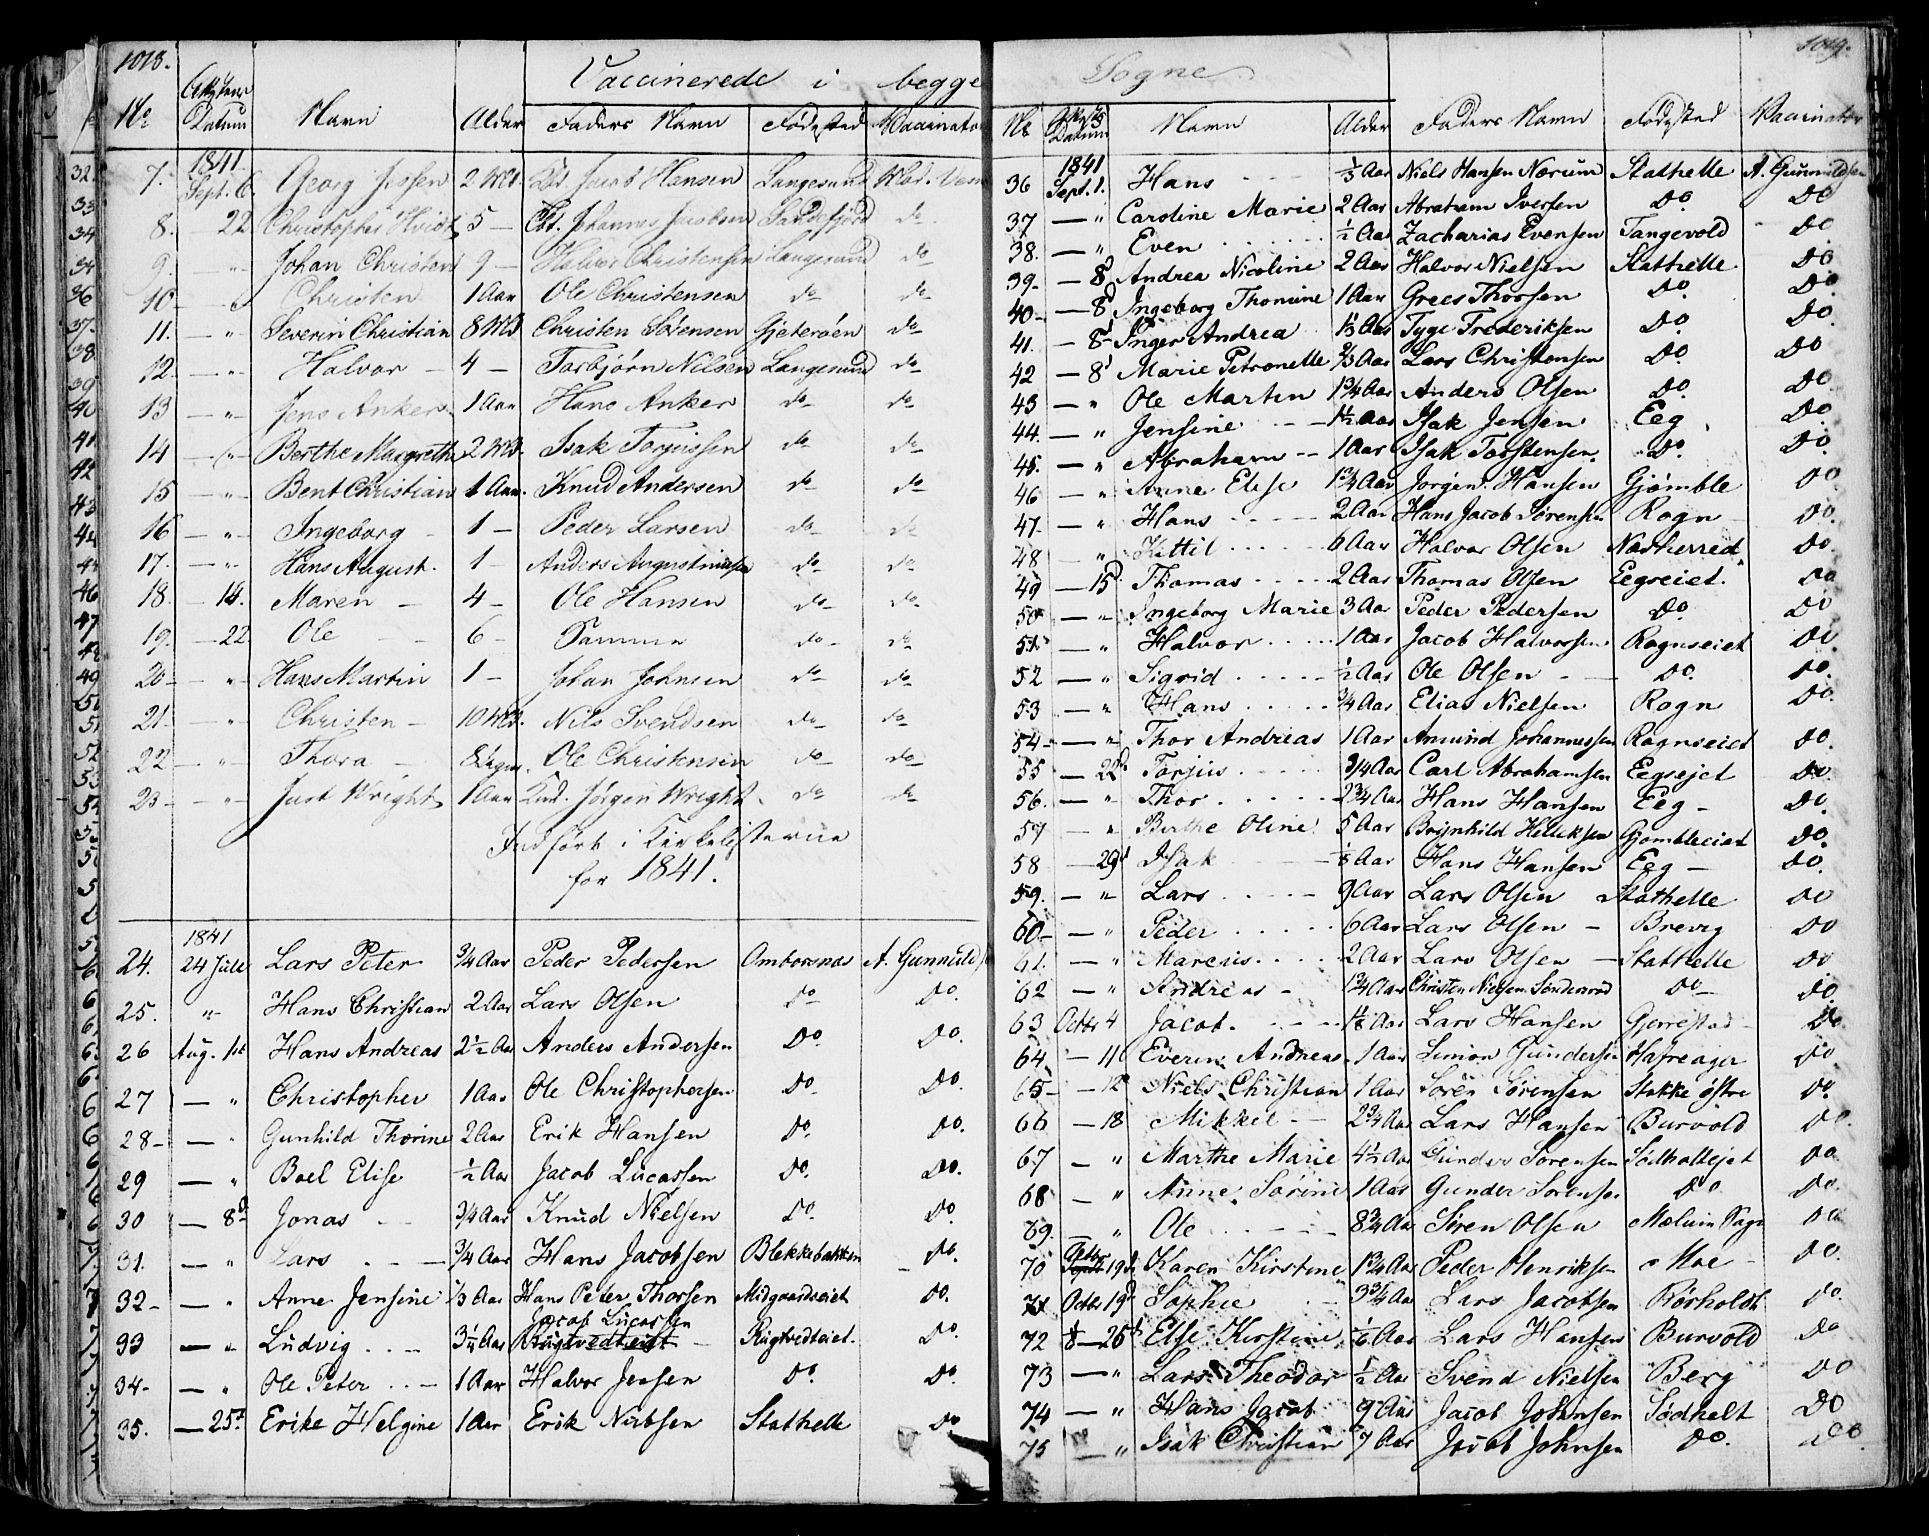 1018.
Vaccinerede i begge
No Datum Navn Alder Faders Navn Fødested Vaccinator
1841
7. Sept. 6. Georg 2 Md. Jacob Hansen Langesund
8. 22 Christopher Hvidt 5 — Johannes Jacobsen Sandefjord do
9. — " Johan Christen 9 — Halvor Christensen Langesund do
10 — " Christen 1 Aar Ole Christensen do do
11. — " Severin Christian 8 Md Christen Sörensen Gjeteröen do
12. — " Halvor — 4 — Torbjørn Nilsen Langesund do
13 — " Jens Anker 1 Aar Hans Anker do do
14 — " Berthe Margrethe 2 Md. Isak Torjussen do do
15 — " Bent Christian 1 Aar. Knud Andersen do do
16 — " Ingeborg 1 — Peder Larsen do do
17. — " Hans August. 1 — Anders Augustinusen do do
18. — 14. Maren — 4 — Ole Hansen do do
19. — 22. Ole — 6 — Samme do do
20 — " Hans Martin 1 — Johan Johnsen do do
21. — " Christen — 10 Md. Nils Svendsen do do
22 — " Thora — Ole Christensen do do
23 — " Just Wright 1 Aar Jørgen Wright do do
Indført i Kirkelisterne
for 1841.
1841
24. 24 Jule Lars Peter 3/4 Aar Peder Pedersen Omborsnæs A. Gunnuldsen
25. " Hans Christian 2 Aar Lars Olsen Do Do.
26 Aug. 1st Hans Andreas 2 1/2 Aar Anders Andersen Do. Do.
27 — " Christopher 1 Aar Ole Christophersen Do Do.
28 — " Gunhild Thorine 2 Aar Erik Hansen Do. Do.
29 — " Boel Elise 1/2 Aar Jacob Lucassen Do. Do.
30 — 8d Jonas 3/4 Aar Knud Nielsen Do. Do.
31. — " Lars 3/4 Aar Hans Jacobsen Blekkebakken Do.
32 — " Anne Jensine 1/3 Aar Hans Peter Thorsen Midgaardseiet Do.
Jacob Lucassen
33 — " Ludvig 3 1/4 Aar Rugtvedteiet Rugtvedteiet. Do
34 — " Ole Peter 1 Aar Halvor Jensen Do. Do.
35. — 25d Erike Helgine 1 Aar Erik Nielsen Stathelle Do
1019.
Sogne.
No Datum Navn Alder Faders Navn Fødested Vaccinator
1841
36 Sept. 1. Hans 1/3 Aar Niels Hansen Nærum Stathelle A. Gunnuldsen
37 — " Caroline Marie 2 Aar Abraham Iversen Do. Do
38. — " Even 1/2 Aar Zacharias Evensen Tangevold Do
39 — 8d Andrea Nicoline 2 Aar Halvor Nielsen Stathelle Do
40 — 8d Ingeborg Thomine 1 Aar Grees Thorsen Do. Do.
41. — 8d Inger Andrea 1 1/3 Aar Tyge Frederiksen Do Do.
42 — 8d Marie Petronelle 2/3 Aar Lars Christensen Do Do
43 — " Ole Martin 1 3/4 Aar Anders Olsen Do. Do
44. — " Jensine 1 1/2 Aar Isak Jensen Eeg Do.
45. — " Abraham 1 Aar Isak Torstensen Do. Do.
46 — " Anne Elise 1 3/4 Aar Jørgen Hansen Gjømble Do
47 — " Hans 2 Aar Hans Jacob Sørensen Rogn Do.
48 " Kittil 6 Aar Halvor Olsen Nordherred Do.
49 — 15d Thomas 2 Aar Thomas Olsen Eegseiet. Do
50 — " Ingeborg Marie 3 Aar Peder Pedersen Do. Do
51 — " Halvor 1 Aar Jacob Halvorsen Rognseiet Do.
52 — " Sigrid 1/2 Aar Ole Olsen Do. Do.
53 — " Hans 3/4 Aar Elias Nielsen Rogn Do.
54 — " Thor Andreas 1 Aar Amund Johannessen Rognseiet Do.
55 — 22d Torjus 3/4 Aar Carl Abrahamsen Eegsejet Do.
56. — " Thor 2 3/4 Aar Hans Hansen Eeg — Do.
57 — " Berthe Oline 5 Aar Brynhild Gjømbleeiet Do.
58 — 29d Isak Aar Hans Hansen Eeg — Do.
59. — " Lars 9 Aar Lars Olsen Stathelle Do
60 — " Peder 6 Aar Lars Olsen — Brevig Do
61. — " Marcus 2 Aar Lars Olsen — Stathelle Do
62 — " Andreas 1 3/4 Aar Christen Nielsen Do Do.
63 Octbr 4 Jacob. Aar Lars Hansen Gjerrestad Do
64 — 11 Andreas 1 Aar Simon Gundersen Hafreager Do
65 — 12 Niels Christian 1 Aar Sören Sørensen Stokke østre Do
66 — 18 Mikkel 2 3/4 Aar Lars Hansen Burvold Do.
67 — " Marthe Marie 4 1/2 Aar Gunder Sorensen Do
68 — " Anne Sørine 1 Aar Gunder Sorensen Do Do.
69. — " Ole 8 3/4 Aar Sören Olsen Do
70 Octbr 19d. Karen Kirstine 1 3/4 Aar Peder Henriksen Moe Do.
71 Octbr 19d Sophie 3 3/4 Aar Lars Jacobsen Rörholdt Do.
72 — 26d Else Kirstine 1/6 Aar Lars Hansen Burvold Do
73 — " Lars Theodor 1/2 Aar Svend Nielsen Berg Do
74 — " Hans Jacob 9 Aar Jacob Johnsen Sødholt Do
75 — " Isak Christian 7 Aar Jacob Johnsen Do. Do.